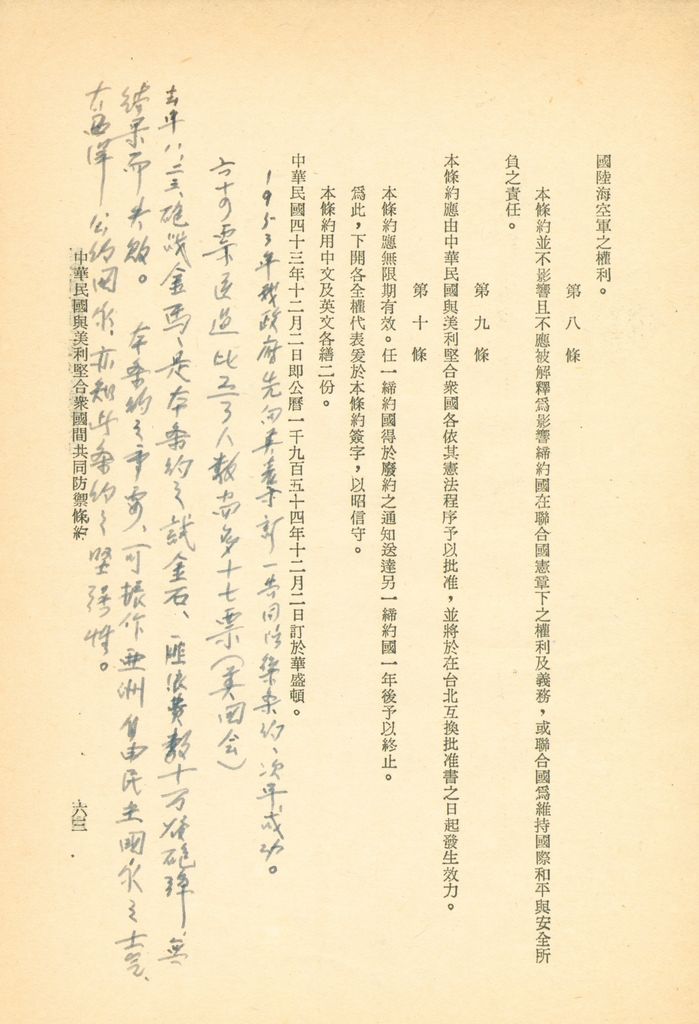 國陸海空軍之權利。
第八條
本條約並不影響且不應被解釋爲影響締約國在聯合國憲章下之權利及義務，或聯合國爲維持國際和平與安全所
負之責任。
第九條
本條約應由中華民國與美利堅合衆國各依其憲法程序予以批准，並將於在台北互換批准書之日起發生效力。
第十條
本條約應無限期有效。任一締約國得於廢約之通知送達另一締約國一年後予以終止。
爲此，下開各全權代表爰於本條約簽字，以昭信守。
本條約用中文及英文各繕二份。
中華民國四十三年十二月二日即公曆一千九百五十四年十二月二日訂於華盛頓。
1953年我政府先向美表示訂一共同防禦条約、次年成功。
六十の票 人数 多十七票（美国会）
去年八、二三、砲战金馬、是本条約之試金石、匪浪費数十万發砲弹、無
結果而失敗。本条約之重要、可振作亜洲自由民主國家之士気、
大西洋公約国家、亦知此条約之堅强性。
中華民國與美利堅合衆國間共同防禦條約
六三